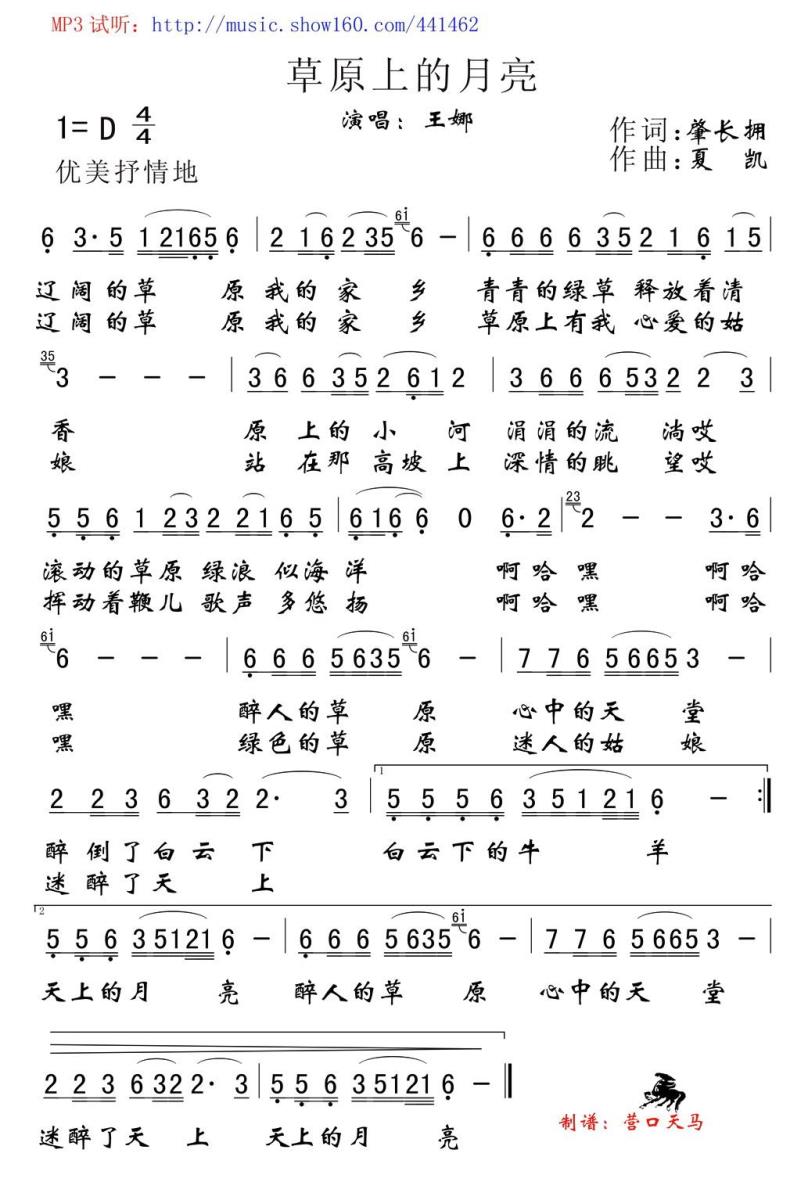 MP3 试听：http://music.show160.com/441462
草原上的月亮
1= D 4/4
演唱：王娜
作词：肇长拥
优美抒情地
作曲：夏 凯
6 3· 5 1 2165 6 | 2 1 6 2 35 6i 6 – | 6 6 6 6 35 2 1 6 1 5 |
辽阔的草 原 我的 家 乡 青青的绿草 释放着清
辽阔的草 原 我的 家 乡 草原上有我 心爱的姑
35 3 – – – | 3 6 6 35 2 61 2 | 3 6 6 6 53 2 2 3 |
香 原 上的 小 河 涓涓的流 淌哎
娘 站 在那 高坡 上 深情的眺 望哎
5 5 6 1 23 2 21 6 5 | 6 16 6 0 6· 2 | 23 2 – – 3· 6 |
滚动的草原 绿浪 似海 洋 啊哈嘿 啊哈
挥动着鞭儿 歌声 多悠 扬 啊哈嘿 啊哈
6i 6 – – – | 6 6 6 5635 6i 6 – | 7 7 6 5665 3 – |
嘿 醉人的草 原 心中的天 堂
嘿 绿色的草 原 迷人的姑 娘
2 2 3 6 32 2· 3 | 1 5 5 5 6 35121 6 – :||
醉 倒了白云 下 白云下的牛 羊
迷 醉了天 上
2 5 5 6 35121 6 – | 6 6 6 5635 6i 6 – | 7 7 6 5665 3 – |
天上的月 亮 醉人的草 原 心中的天 堂
2 2 3 6 32 2· 3 | 5 5 6 35121 6 – ||
迷醉了天 上 天上的月 亮
制谱：营口天马